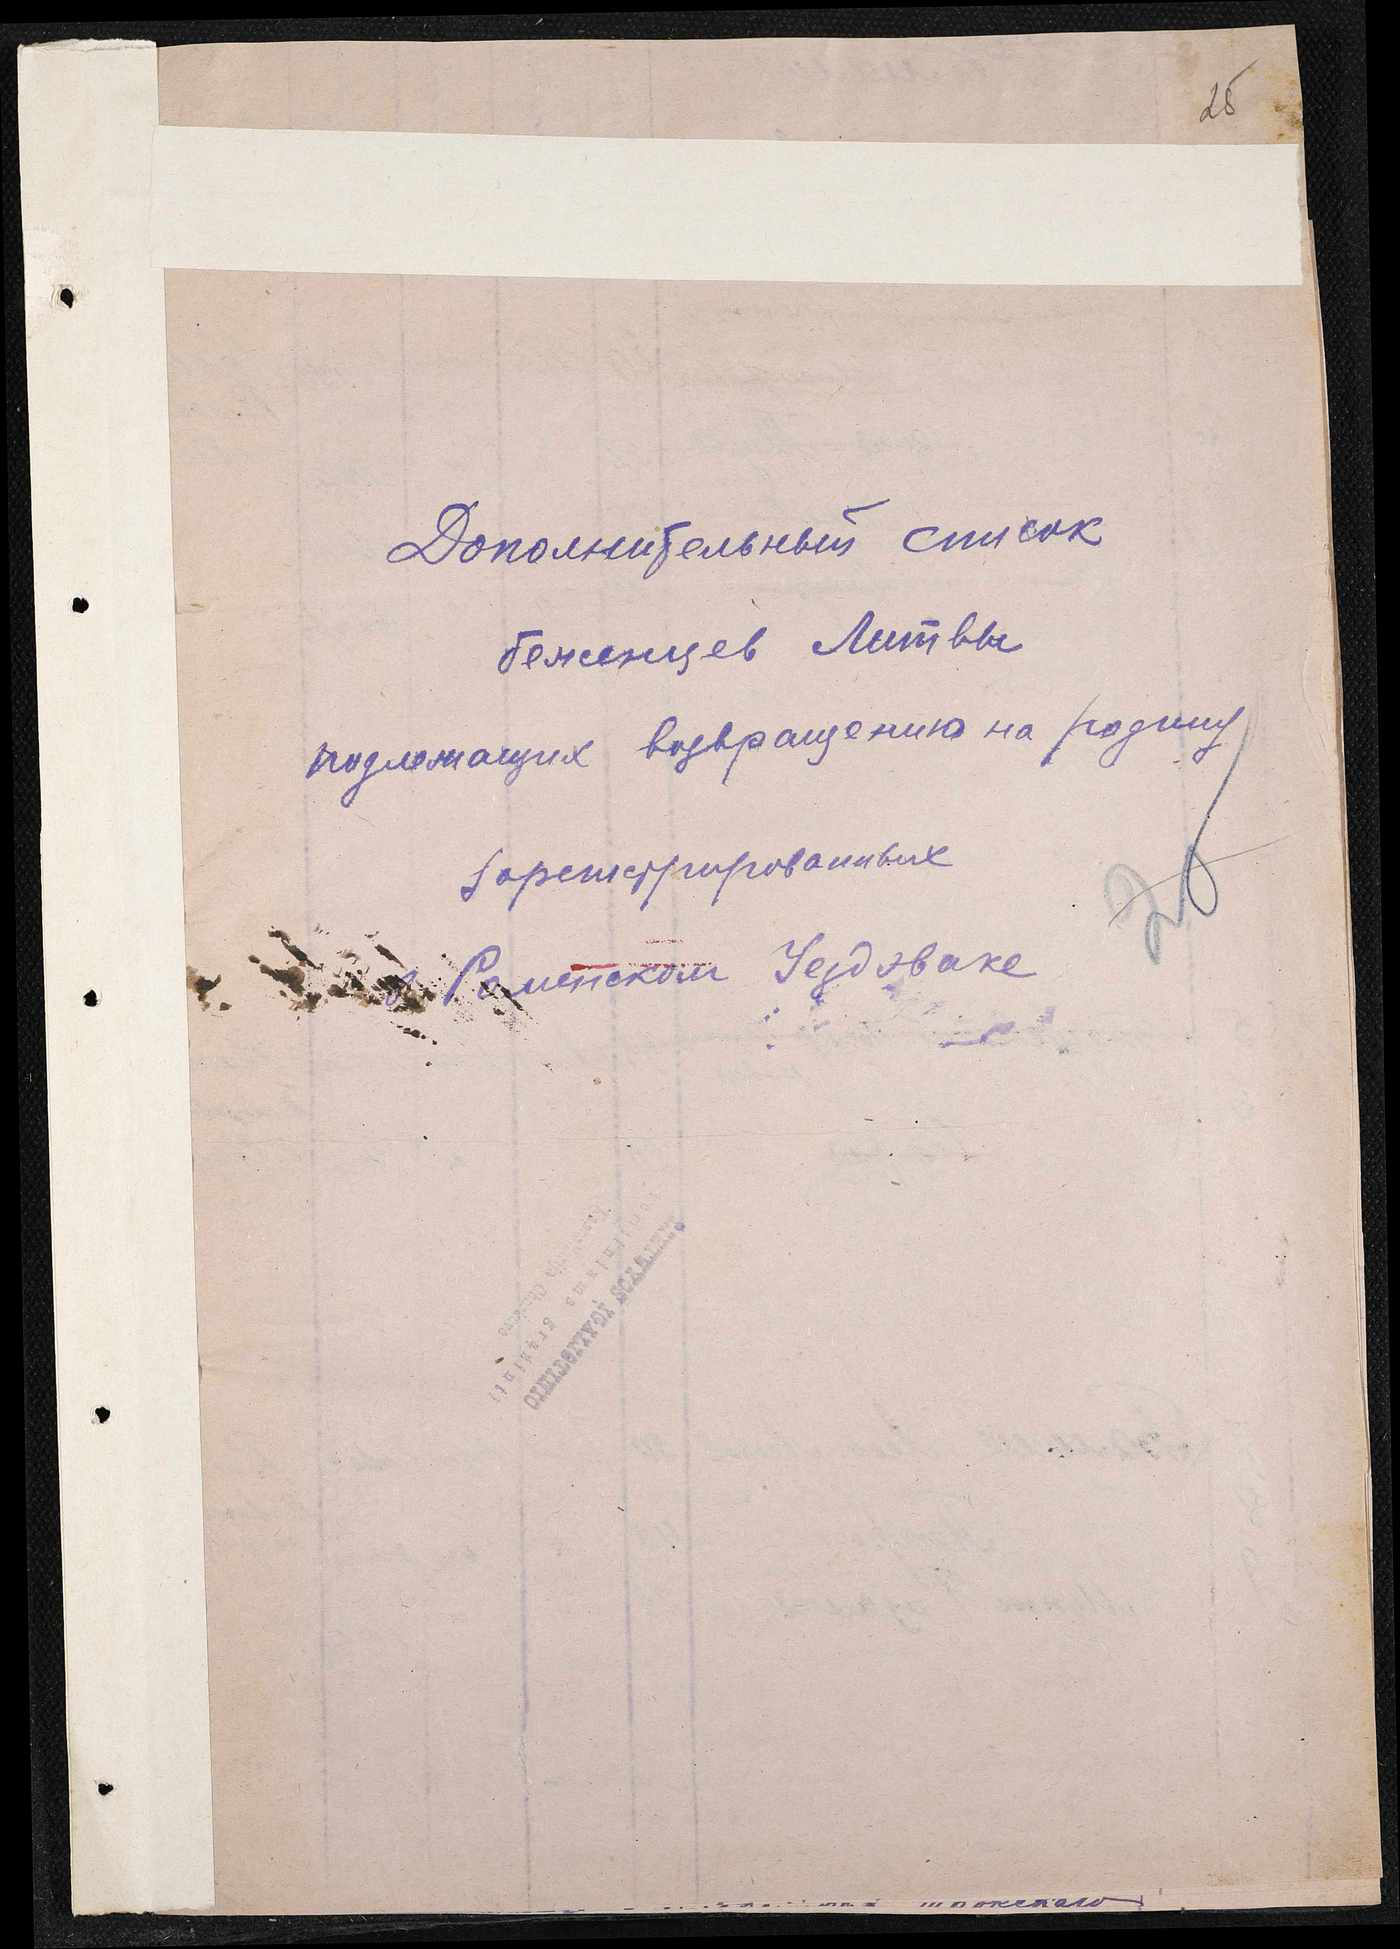 25
Дополнительный список
беженцев Литвы
подлежащих возвращению на родину
зарегистрированных
в Роменском Уездэваке